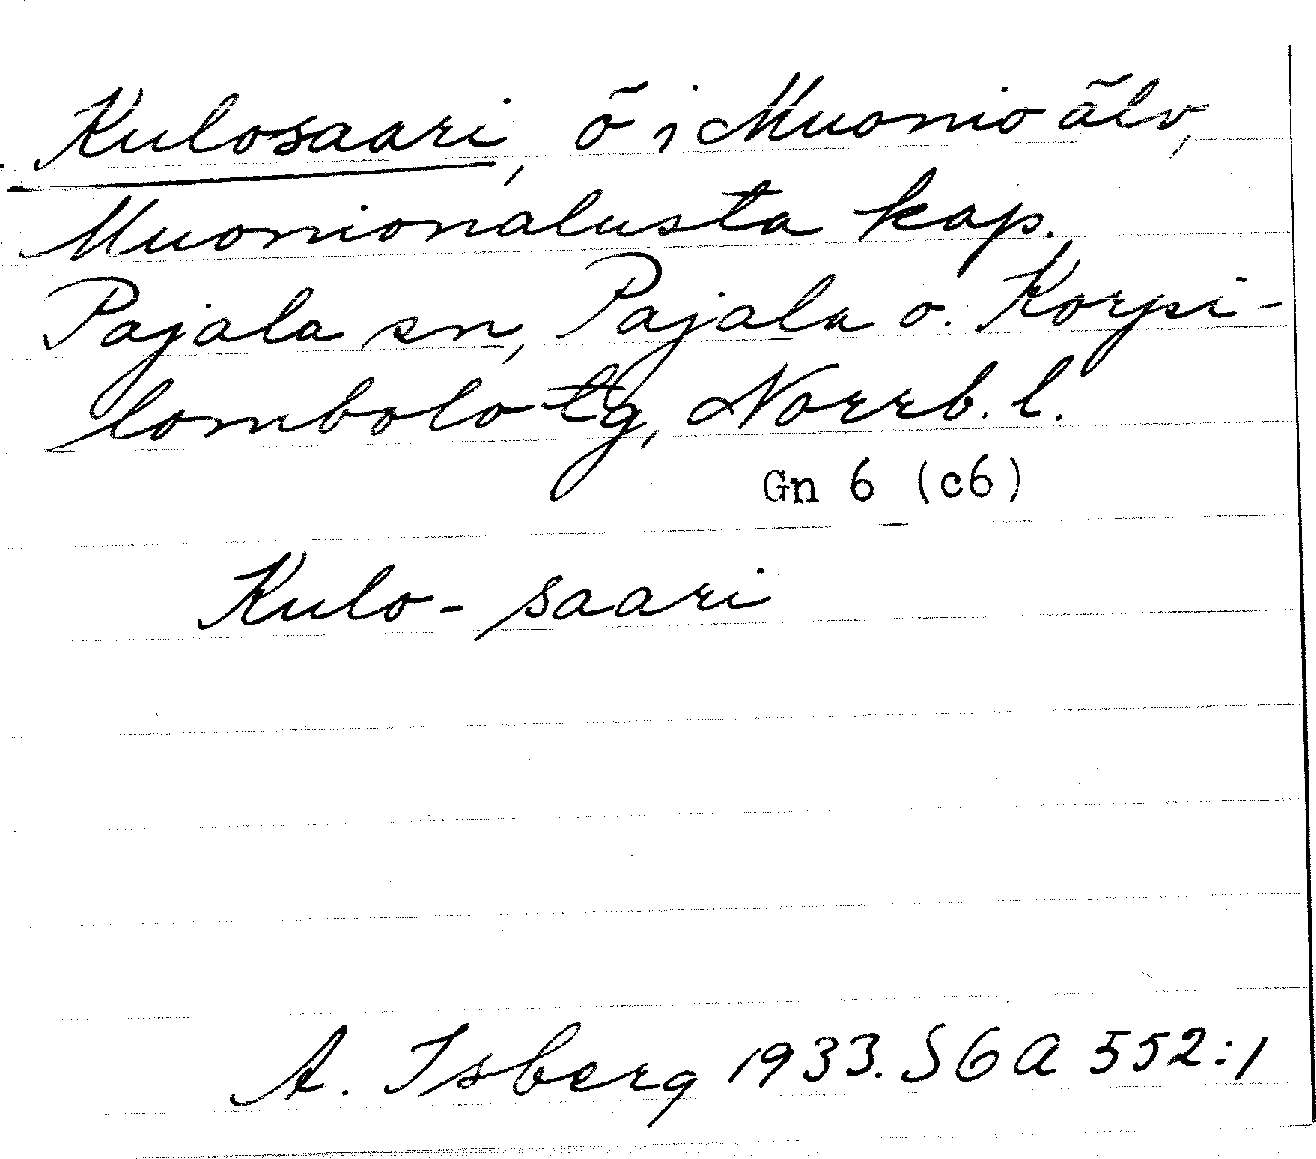 Kulosaari, ö i Muonio älv,
Muonionalusta kap.
Pajala sn, Pajala o. Korpi-
lombolo tg, Norrb. l.
Gn 6 (c6)
Kulo- saari
A. Isberg 1933. SGA 552:1